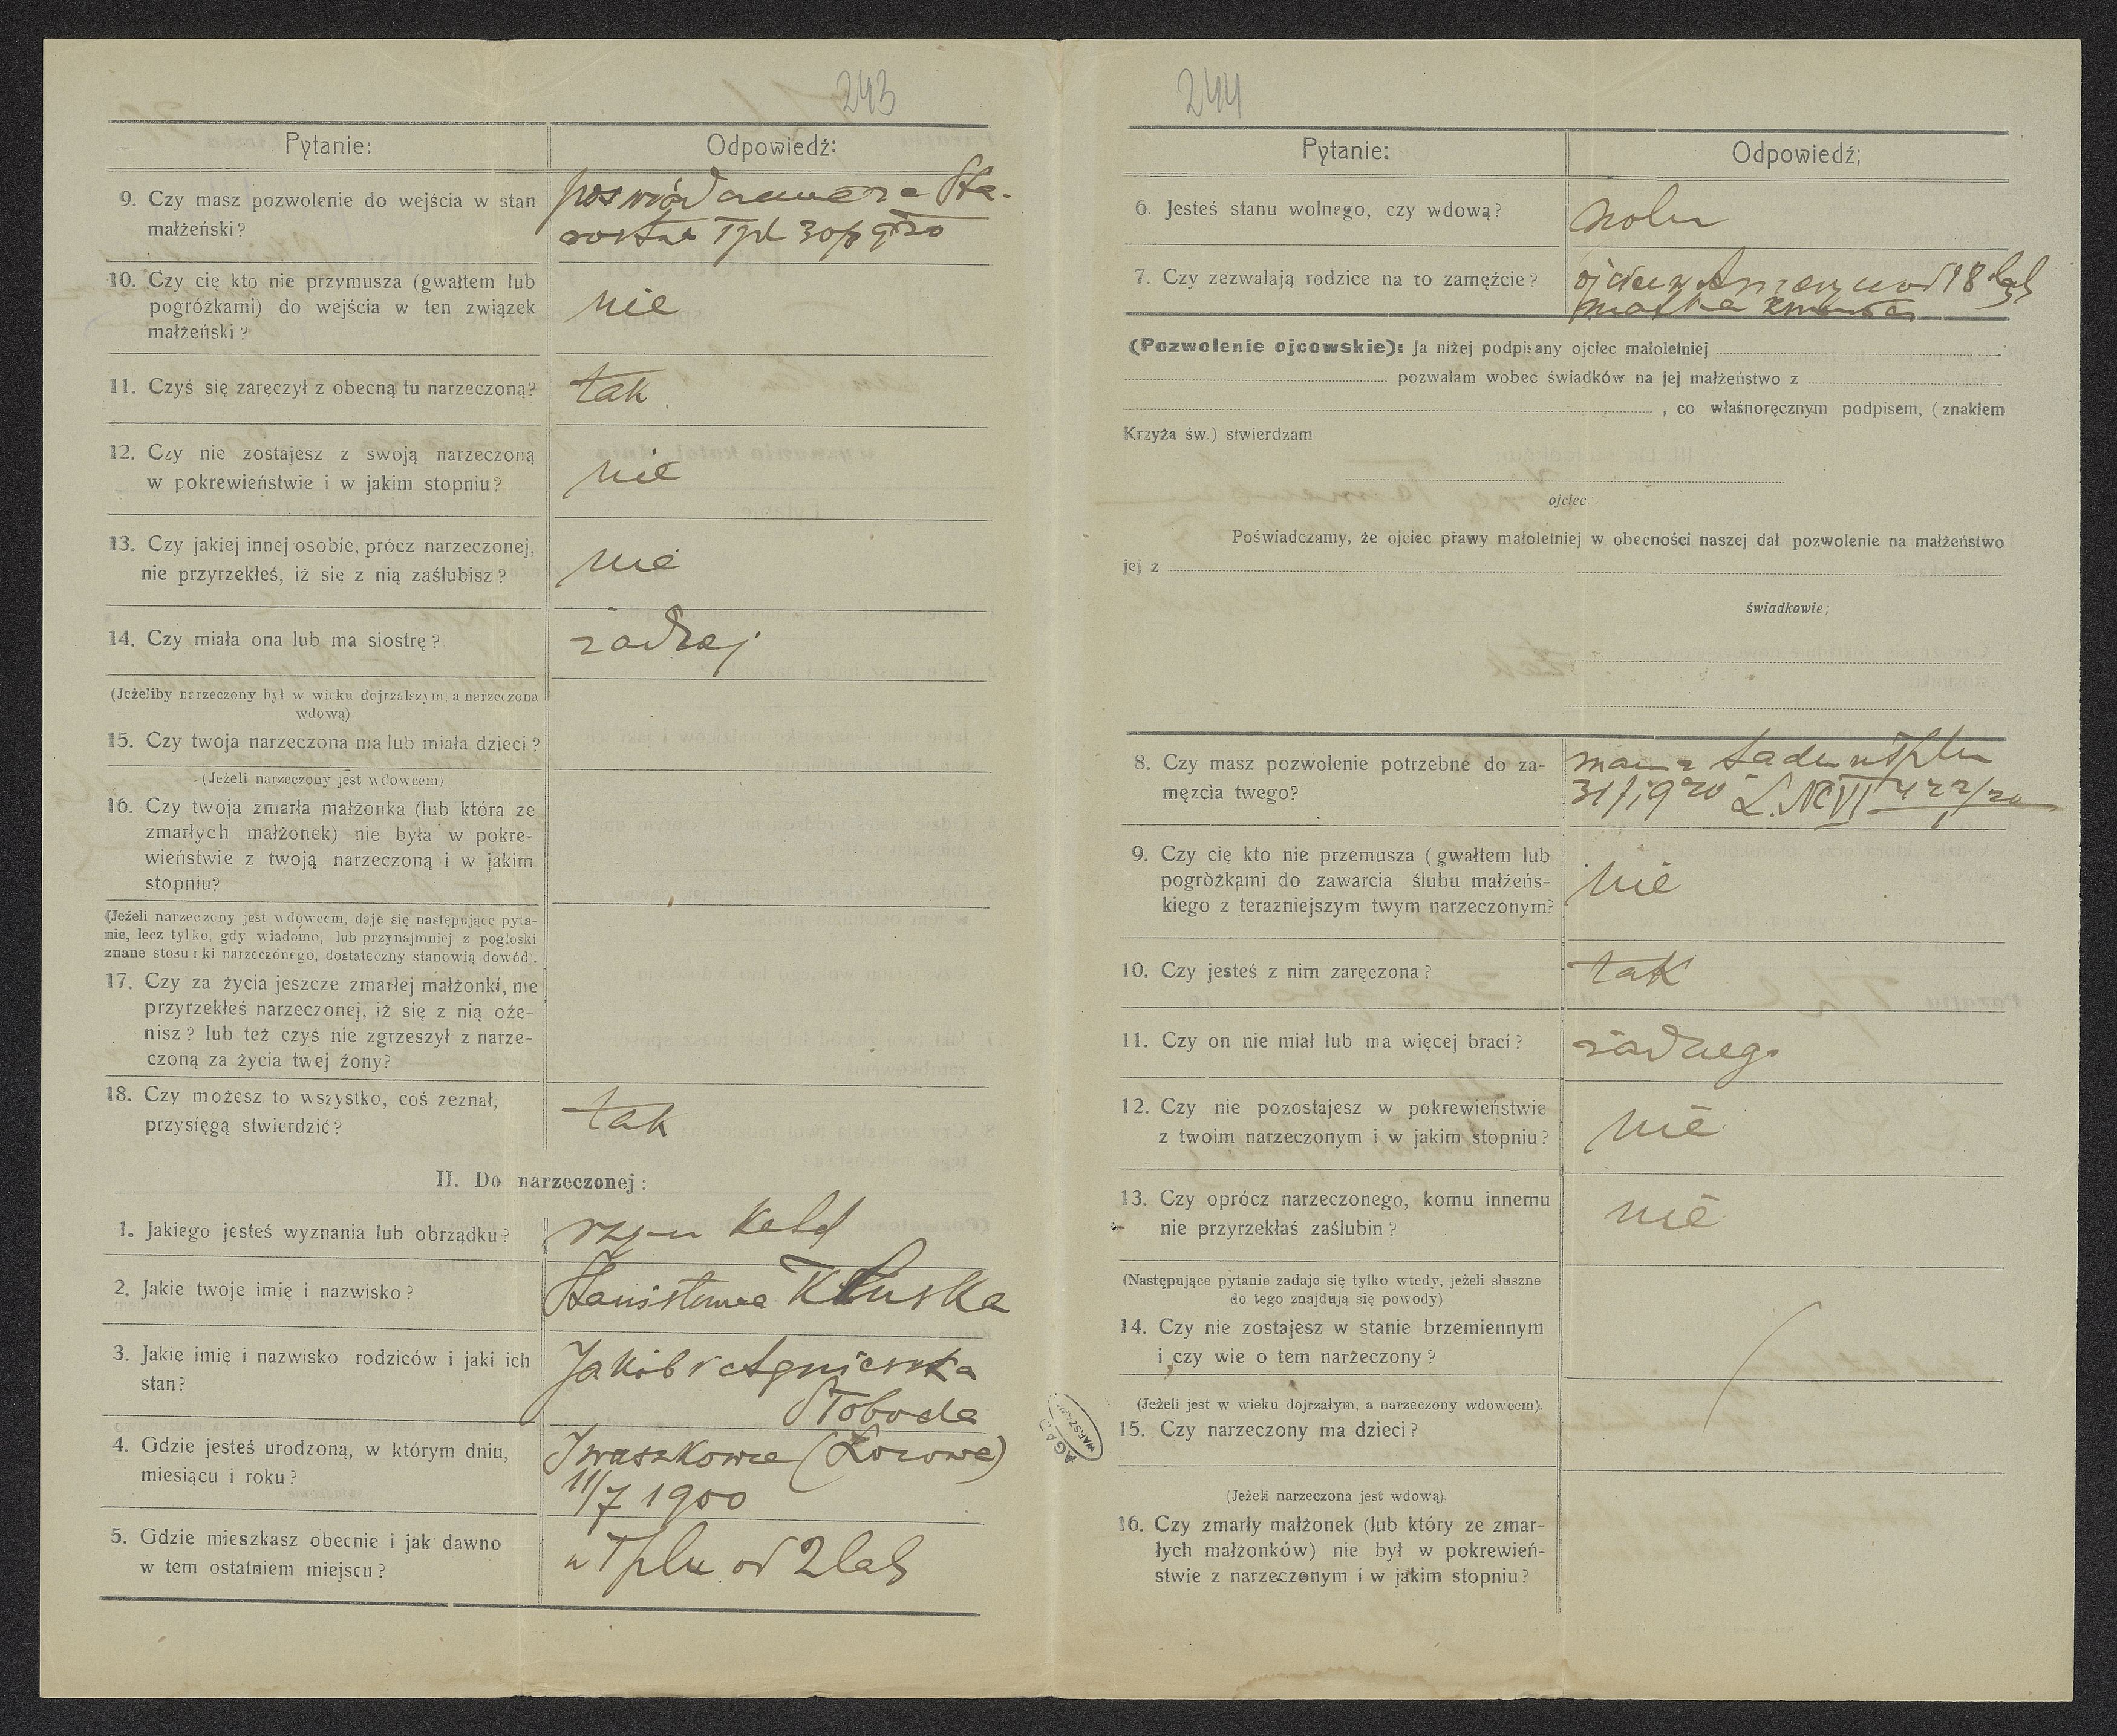 243
Pytanie:
Odpowiedź:
9. Czy masz pozwolenie do wejścia w stan
małżeński?
10. Czy cię kto nie przymusza (gwałtem lub
pogróżkami) do wejścia w ten związek
małżeński?
nie
11. Czyś się zaręczył z obecną tu narzeczoną?
tak
12. Czy nie zostajesz z swoją narzeczoną
w pokrewieństwie i w jakim stopniu?
nie
13. Czy jakiej innej osobie, prócz narzeczonej,
nie przyrzekłeś, iż się z nią zaślubisz?
nie
14. Czy miała ona lub ma siostrę?
żadnej
(Jeżeliby narzeczony był w wieku dojrzalszym, a narzeczona
wdową)
15. Czy twoja narzeczona ma lub miała dzieci?
(Jeżeli narzeczony jest wdowcem)
16. Czy twoja zmarła małżonka (lub która ze
zmarłych małżonek) nie była w pokre-
wieństwie z twoją narzeczoną i w jakim
stopniu?
(Jeżeli narzeczony jest wdowcem, daje się następujące pyta-
nie, lecz tylko, gdy wiadomo, lub przynajmniej z pogłoski
znane stosunki narzeczonego, dostateczny stanowią dowód).
17. Czy za życia jeszcze zmarłej małżonki, nie
przyrzekłeś narzeczonej, iż się z nią oże-
nisz? lub też czyś nie zgrzeszył z narze-
czoną za życia twej żony?
18. Czy możesz to wszystko, coś zeznał,
przysięgą stwierdzić?
tak
II. Do narzeczonej:
1. Jakiego jesteś wyznania lub obrządku?
2. Jakie twoje imię i nazwisko?
Stanisława Kłuska
3. Jakie imię i nazwisko rodziców i jaki ich
stan?
Jakób i Agnieszka
Słoboda
4. Gdzie jesteś urodzoną, w którym dniu,
miesiącu i roku?
Iwaszkowce (Łozowa)
11/7 1900
5. Gdzie mieszkasz obecnie i jak dawno
w tem ostatniem miejscu?
w Tplu od 2 lat
244
Pytanie:
Odpowiedź;
6. Jesteś stanu wolnego, czy wdową?
7. Czy zezwalają rodzice na to zamęźcie?
ojciec w Ameryce od 18 lat
matka zmarła
(Pozwolenie ojcowskie): Ja niżej podpisany ojciec małoletniej
pozwalam wobec świadków na jej małżeństwo z
, co własnoręcznym podpisem, (znakiem
Krzyża św.) stwierdzam
ojciec
Poświadczamy, że ojciec prawy małoletniej w obecności naszej dał pozwolenie na małżeństwo
jej z
świadkowie;
8. Czy masz pozwolenie potrzebne do za-
męzcia twego?
mam z Sadu w Tplu
31/7 1920 L. NcVI 422/20
9. Czy cię kto nie przemusza (gwałtem lub
pogròżkami do zawarcia ślubu małżeńs-
kiego z terazniejszym twym narzeczonym?
nie
10. Czy jesteś z nim zaręczona?
tak
11. Czy on nie miał lub ma więcej braci?
żadnego
12. Czy nie pozostajesz w pokrewieństwie
z twoim narzeczonym i w jakim stopniu?
nie
13. Czy oprócz narzeczonego, komu innemu
nie przyrzekłaś zaślubin?
nie
(Następujące pytanie zadaje się tylko wtedy, jeżeli słuszne
do tego znajdują się powody)
14. Czy nie zostajesz w stanie brzemiennym
i czy wie o tem narżeczony?
(Jeżeli jest w wieku dojrzałym, a narzeczony wdowcem).
15. Czy narzeczony ma dzieci?
(Jeżeli narzeczona jest wdową).
16. Czy zmarły małżonek (lub który ze zmar-
łych małżonków) nie był w pokrewień-
stwie z narzeczonym i w jakim stopniu?
AGAD
WARSZAWA